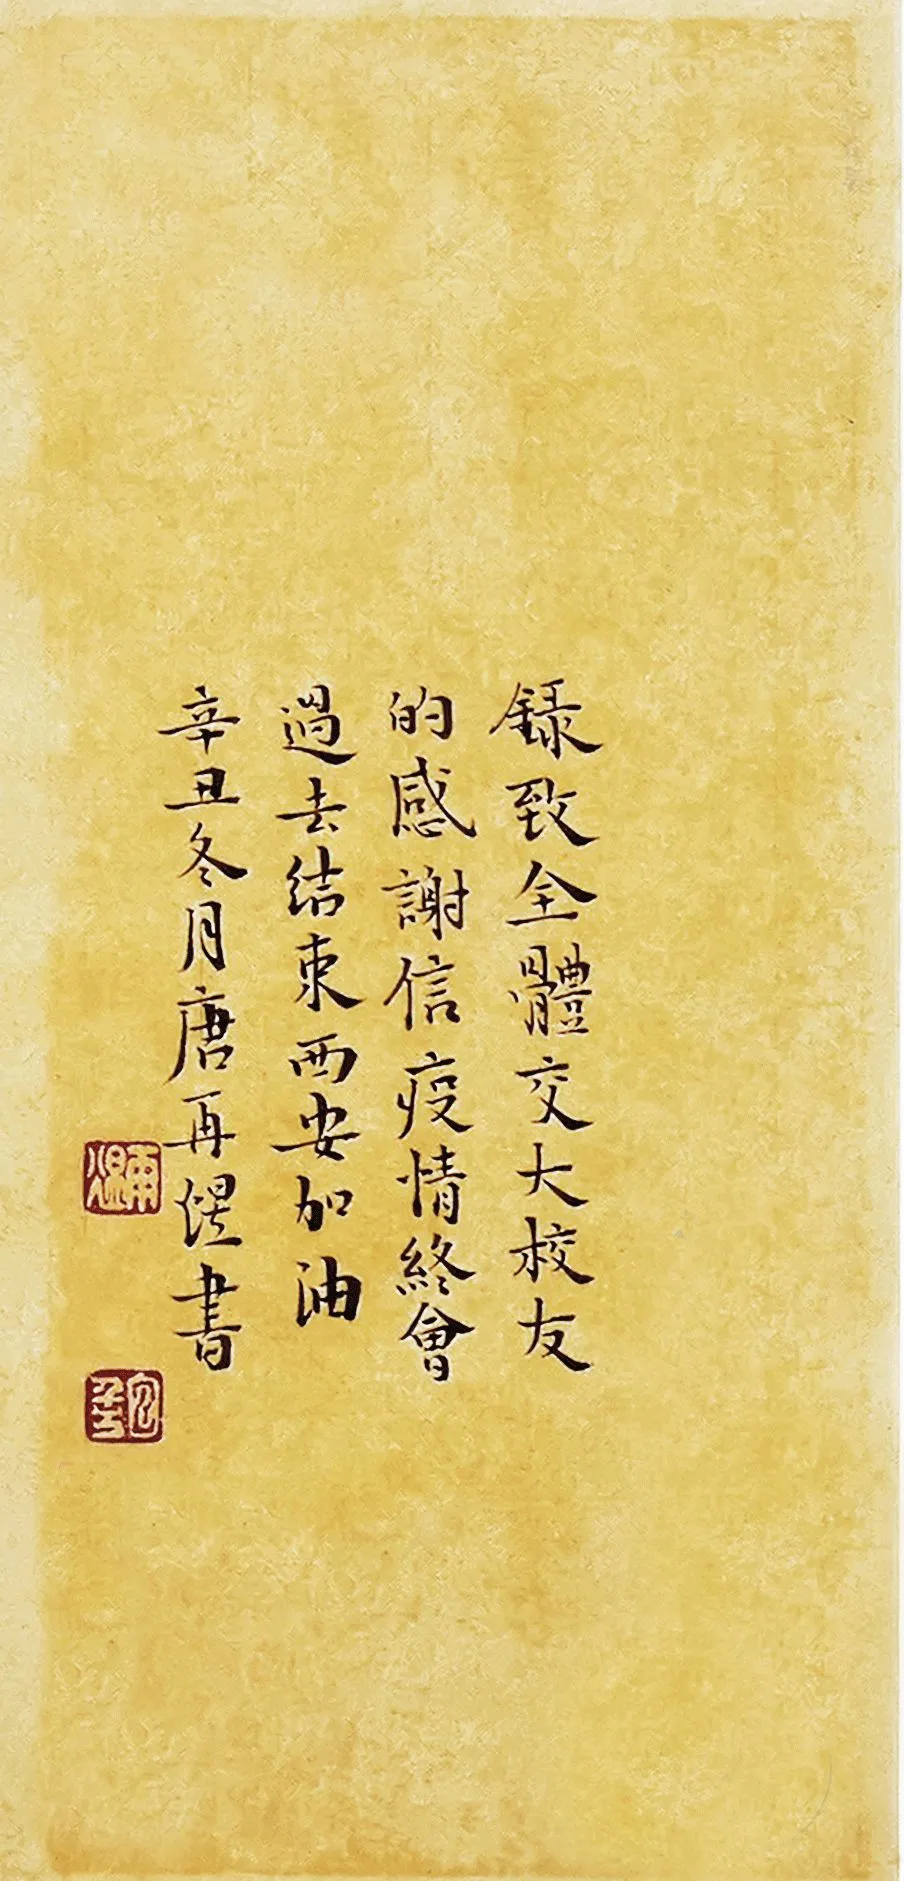 錄致全體交大校友
的感謝信疫情終會
過去結束西安加油
辛丑冬月唐再煜書